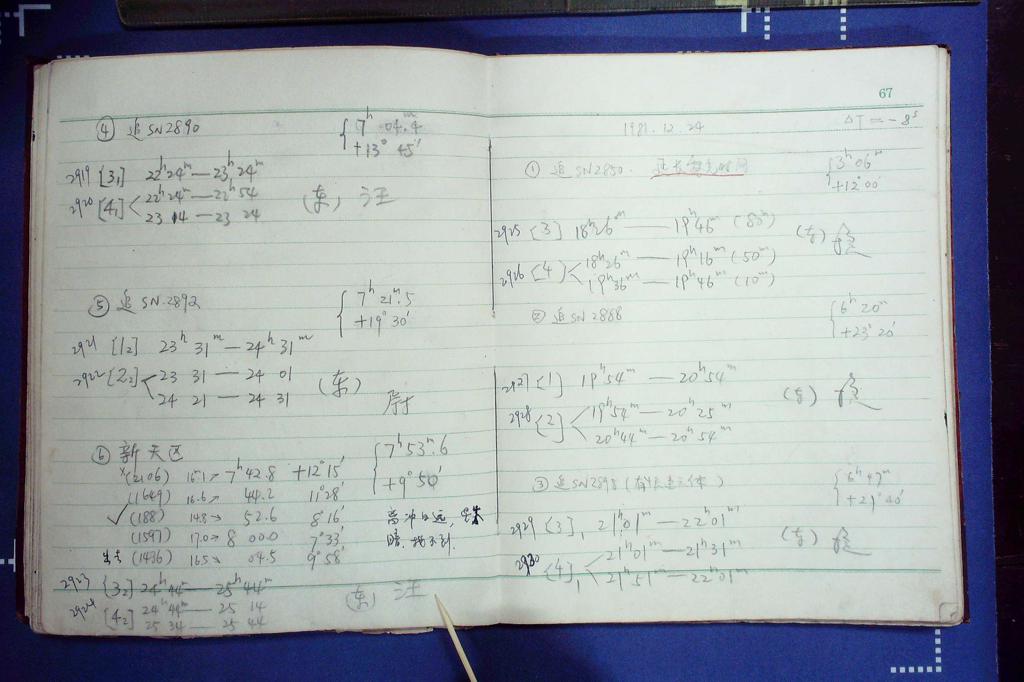 ④ 追 SN2890 { 7ʰ 04.4ᵐ
+13° 45′
2919 [3₁] 22ʰ24ᵐ — 23ʰ24ᵐ
2920 [4₁] < 22ʰ24ᵐ — 22ʰ54
23 14 — 23 24
(东) 汪
⑤ 追 SN.2892 { 7ʰ 21ᵐ.5
+19° 30′
2921 [1₂] 23ʰ 31ᵐ — 24ʰ 31ᵐ
2922 [2₂] < 23 31 — 24 01
24 21 — 24 31
(东)
⑥ 新天区 { 7ʰ53ᵐ.6
+9° 50′
×(2106) 16.1 → 7ʰ42.8 +12°15′
(1649) 16.6 → 44.2 11°28′
✓ (188) 14.8 → 52.6 8°16′
(1597) 17.0 → 8 00.0 7°33′
(1436) 16.5 → 04.5 9°58′
暗, 找不到.
2923 [3₂] 24ʰ44ᵐ — 25ʰ44ᵐ
2924 [4₂] < 24ʰ44ᵐ — 25 14
25 34 — 25 44
(东) 汪
67
1981.12.24 ΔT = −8ˢ
① 追 SN2850. 延长露光时间 { 3ʰ06ᵐ
+12°00′
2925 [3] 18ʰ26ᵐ — 19ʰ46ᵐ (80ᵐ)
2926 [4] < 18ʰ26ᵐ — 19ʰ16ᵐ (50ᵐ)
19ʰ36ᵐ — 19ʰ46ᵐ (10ᵐ)
② 追 SN 2888 { 6ʰ 20ᵐ
+23° 20′
2927 [1] 19ʰ54ᵐ — 20ʰ54ᵐ
2928 [2] < 19ʰ54ᵐ — 20ʰ25ᵐ
20ʰ44ᵐ — 20ʰ54ᵐ
③ 追 SN2898 { 6ʰ47ᵐ
+21°40′
2929 [3]₁ 21ʰ01ᵐ — 22ʰ01ᵐ
2930 [4]₁ < 21ʰ01ᵐ — 21ʰ31ᵐ
21ʰ51ᵐ — 22ʰ01ᵐ